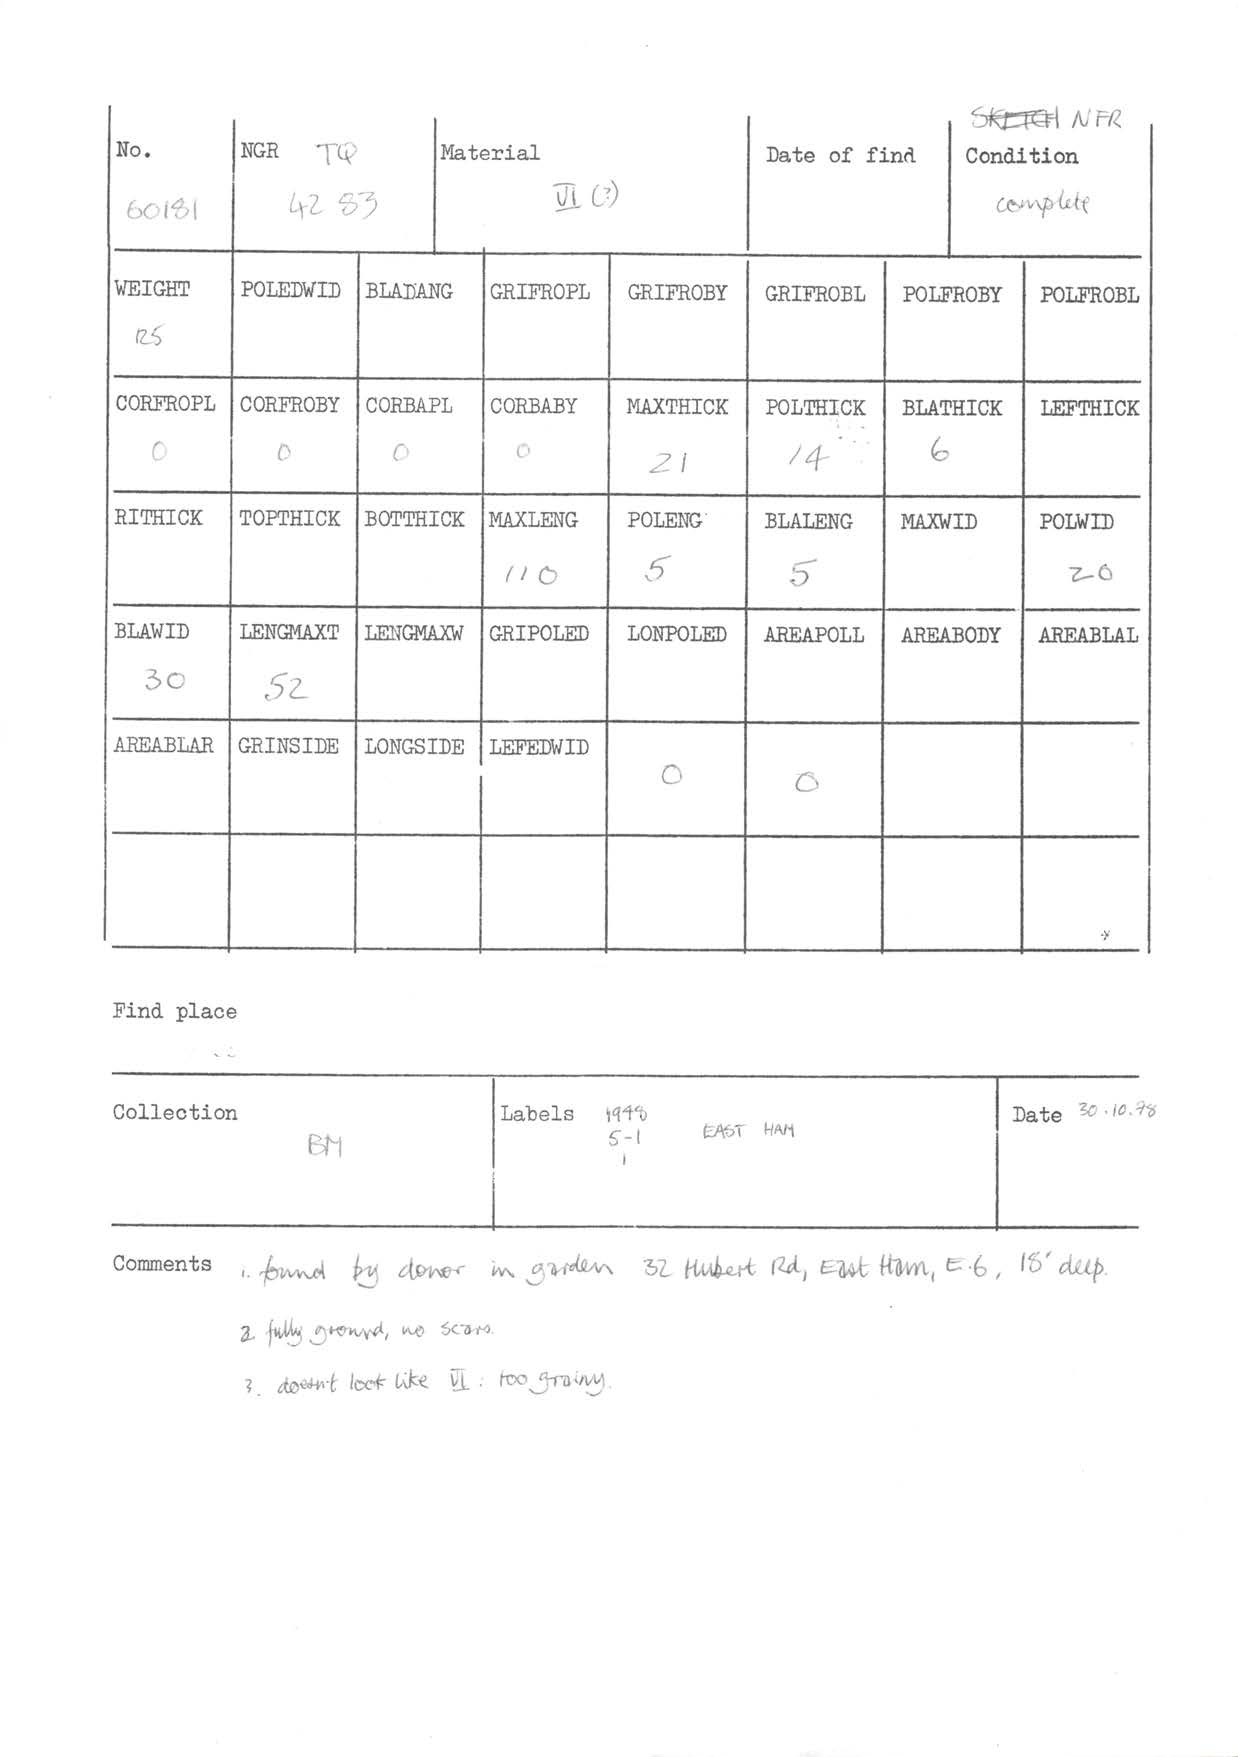 SKETCH NFR
No. NGR TQ Material Date of find Condition
60181 42 83 VI (?) complete
WEIGHT POLEDWID BLADANG GRIFROPL GRIFROBY GRIFROBL POLFROBY POLFROBL
125
CORFROPL CORFROBY CORBAPL CORBABY MAXTHICK POLTHICK BLATHICK LEFTHICK
0 0 0 0 21 14 6
RITHICK TOPTHICK BOTTHICK MAXLENG POLENG BLALENG MAXWID POLWID
110 5 5 20
BLAWID LENGMAXT LENGMAXW GRIPOLED LONPOLED AREAPOLL AREABODY AREABLAL
30 52
AREABLAR GRINSIDE LONGSIDE LEFEDWID
0 0
Find place
Collection Labels 1948 Date 30.10.78
BM 5-1 EAST HAM
1
Comments 1. found by donor in garden 32 Hubert Rd, East Ham, E.6, 18' deep.
2 fully ground, no scars.
3. doesn't look like VI : too grainy.